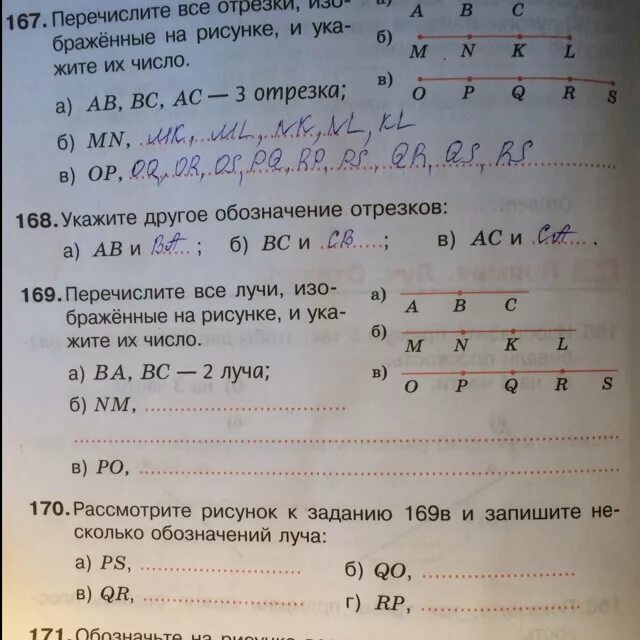 167. Перечислите все отрезки, изо-
бражённые на рисунке, и ука-
жите их число.
а)
A B C
б)
M N K L
в)
O P Q R S
а) AB, BC, AC — 3 отрезка;
б) MN, MK, ML, NK, NL, KL
в) OP, OQ, OR, OS, PQ, RP, PS, QR, QS, RS
168. Укажите другое обозначение отрезков:
а) AB и BA ; б) BC и CB ; в) AC и CA .
169. Перечислите все лучи, изо-
бражённые на рисунке, и ука-
жите их число.
а)
A B C
б)
M N K L
в)
O P Q R S
а) BA, BC — 2 луча;
б) NM,
в) PO,
170. Рассмотрите рисунок к заданию 169в и запишите не-
сколько обозначений луча:
а) PS, б) QO,
в) QR, г) RP,
171. Обозначьте на рисунке